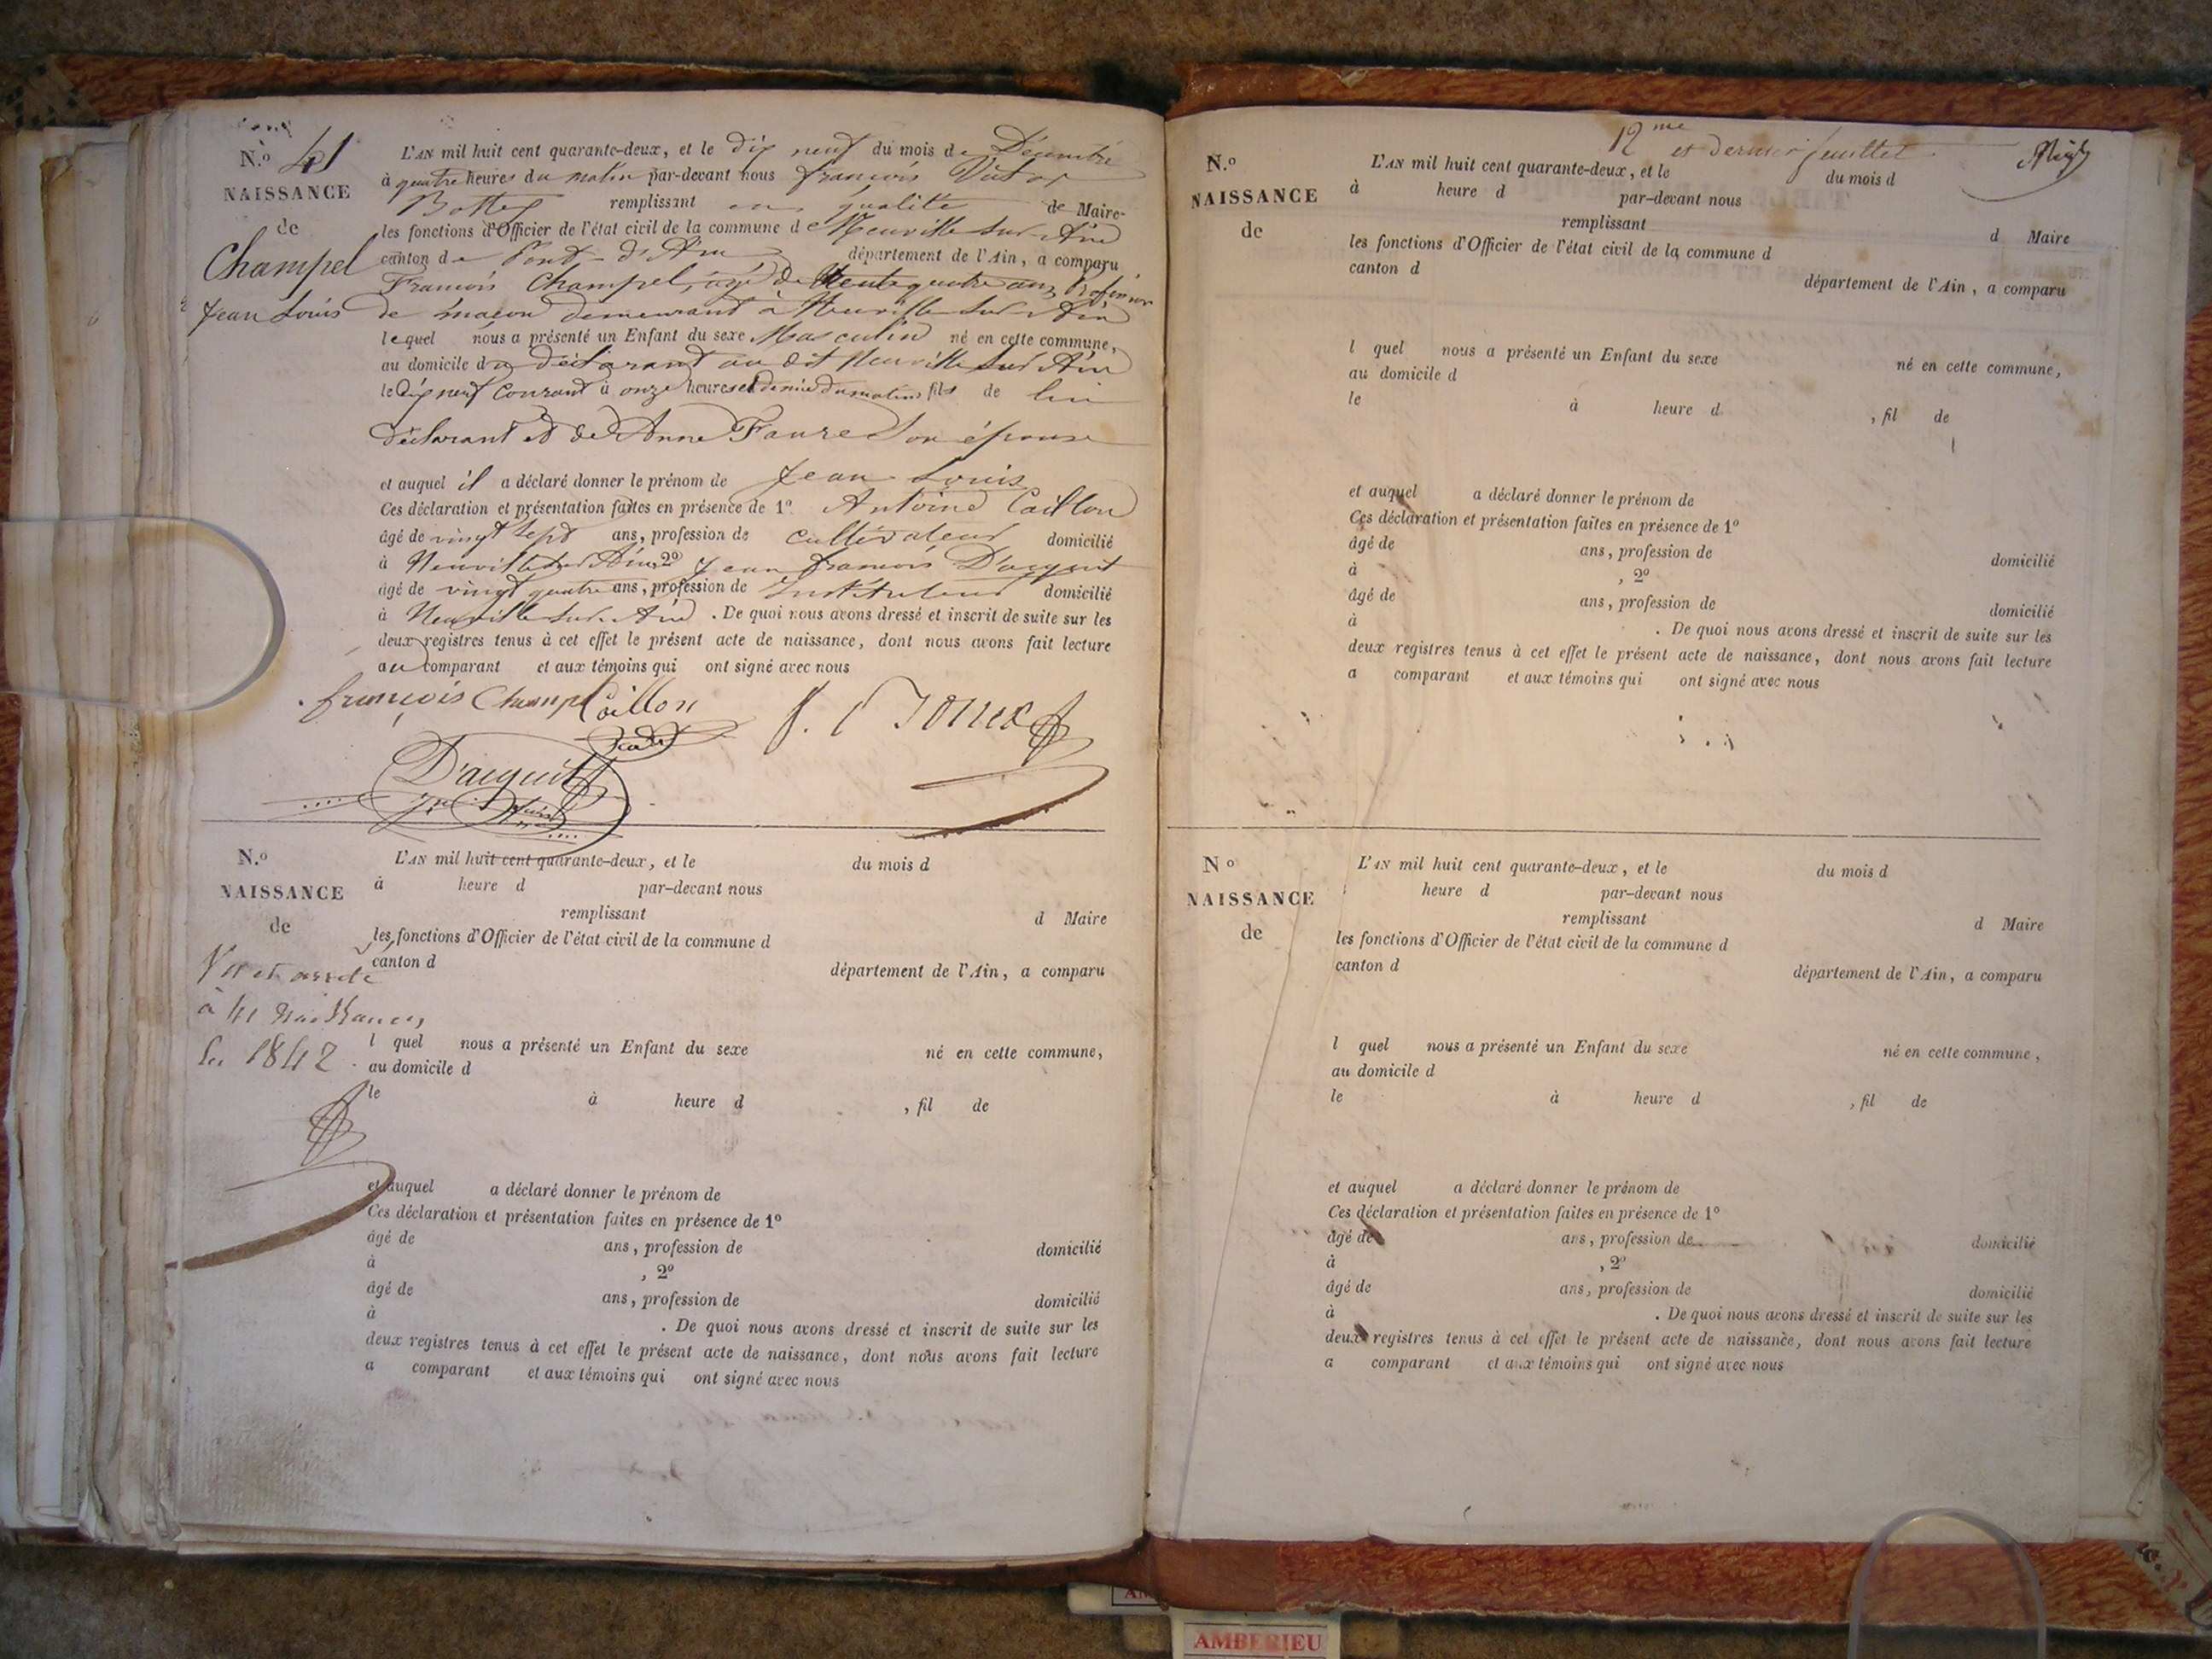 N.º 41
NAISSANCE
de
Champel
Jean Louis
L'AN mil huit cent quarante-deux, et le dix neuf du mois de Décembre
à quatre heures du matin par-devant nous françois Victor
remplissant en qualité de Maire
les fonctions d'Officier de l'état civil de la commune de Neuville sur Ain
canton de Pont-d'Ain département de l'Ain, a comparu
François Champel, âgé de trente quatre ans, Profession
de maçon demeurant à Neuville sur Ain
lequel nous a présenté un Enfant du sexe Masculin né en cette commune,
au domicile du déclarant au dit Neuville sur Ain
le dix neuf courant à onze heures et demie du matin fils de lui
déclarant et de Anne Faure son épouse
et auquel il a déclaré donner le prénom de Jean Louis
Ces déclaration et présentation faites en présence de 1º Antoine Caillon
âgé de vingt sept ans, profession de cultivateur domicilié
à Neuville sur Ain, 2º Jean françois D'acquit
âgé de vingt quatre ans, profession de Instituteur domicilié
à Neuville sur Ain . De quoi nous avons dressé et inscrit de suite sur les
deux registres tenus à cet effet le présent acte de naissance, dont nous avons fait lecture
au comparant et aux témoins qui ont signé avec nous
françois Champel Caillon
D'acquit
N.º
NAISSANCE
de
Vu et arrêté
à 41 naissances
1842
L'AN mil huit cent quarante-deux, et le du mois d
à heure d par-devant nous
remplissant d Maire
les fonctions d'Officier de l'état civil de la commune d
canton d département de l'Ain, a comparu
l quel nous a présenté un Enfant du sexe né en cette commune,
au domicile d
le à heure d , fil de
et auquel a déclaré donner le prénom de
Ces déclaration et présentation faites en présence de 1º
âgé de ans, profession de domicilié
à , 2º
âgé de ans, profession de domicilié
à . De quoi nous avons dressé et inscrit de suite sur les
deux registres tenus à cet effet le présent acte de naissance, dont nous avons fait lecture
a comparant et aux témoins qui ont signé avec nous
12me et dernier feuillet
N.º
NAISSANCE
de
L'AN mil huit cent quarante-deux, et le du mois d
à heure d par-devant nous
remplissant d Maire
les fonctions d'Officier de l'état civil de la commune d
canton d département de l'Ain, a comparu
l quel nous a présenté un Enfant du sexe né en cette commune,
au domicile d
le à heure d , fil de
et auquel a déclaré donner le prénom de
Ces déclaration et présentation faites en présence de 1º
âgé de ans, profession de domicilié
à , 2º
âgé de ans, profession de domicilié
à . De quoi nous avons dressé et inscrit de suite sur les
deux registres tenus à cet effet le présent acte de naissance, dont nous avons fait lecture
a comparant et aux témoins qui ont signé avec nous
Nº
NAISSANCE
de
L'AN mil huit cent quarante-deux, et le du mois d
heure d par-devant nous
remplissant d Maire
les fonctions d'Officier de l'état civil de la commune d
canton d département de l'Ain, a comparu
l quel nous a présenté un Enfant du sexe né en cette commune,
au domicile d
le à heure d , fil de
et auquel a déclaré donner le prénom de
Ces déclaration et présentation faites en présence de 1º
âgé de ans, profession de domicilié
à , 2º
âgé de ans, profession de domicilié
à . De quoi nous avons dressé et inscrit de suite sur les
deux registres tenus à cet effet le présent acte de naissance, dont nous avons fait lecture
a comparant et aux témoins qui ont signé avec nous
AMBERIEU